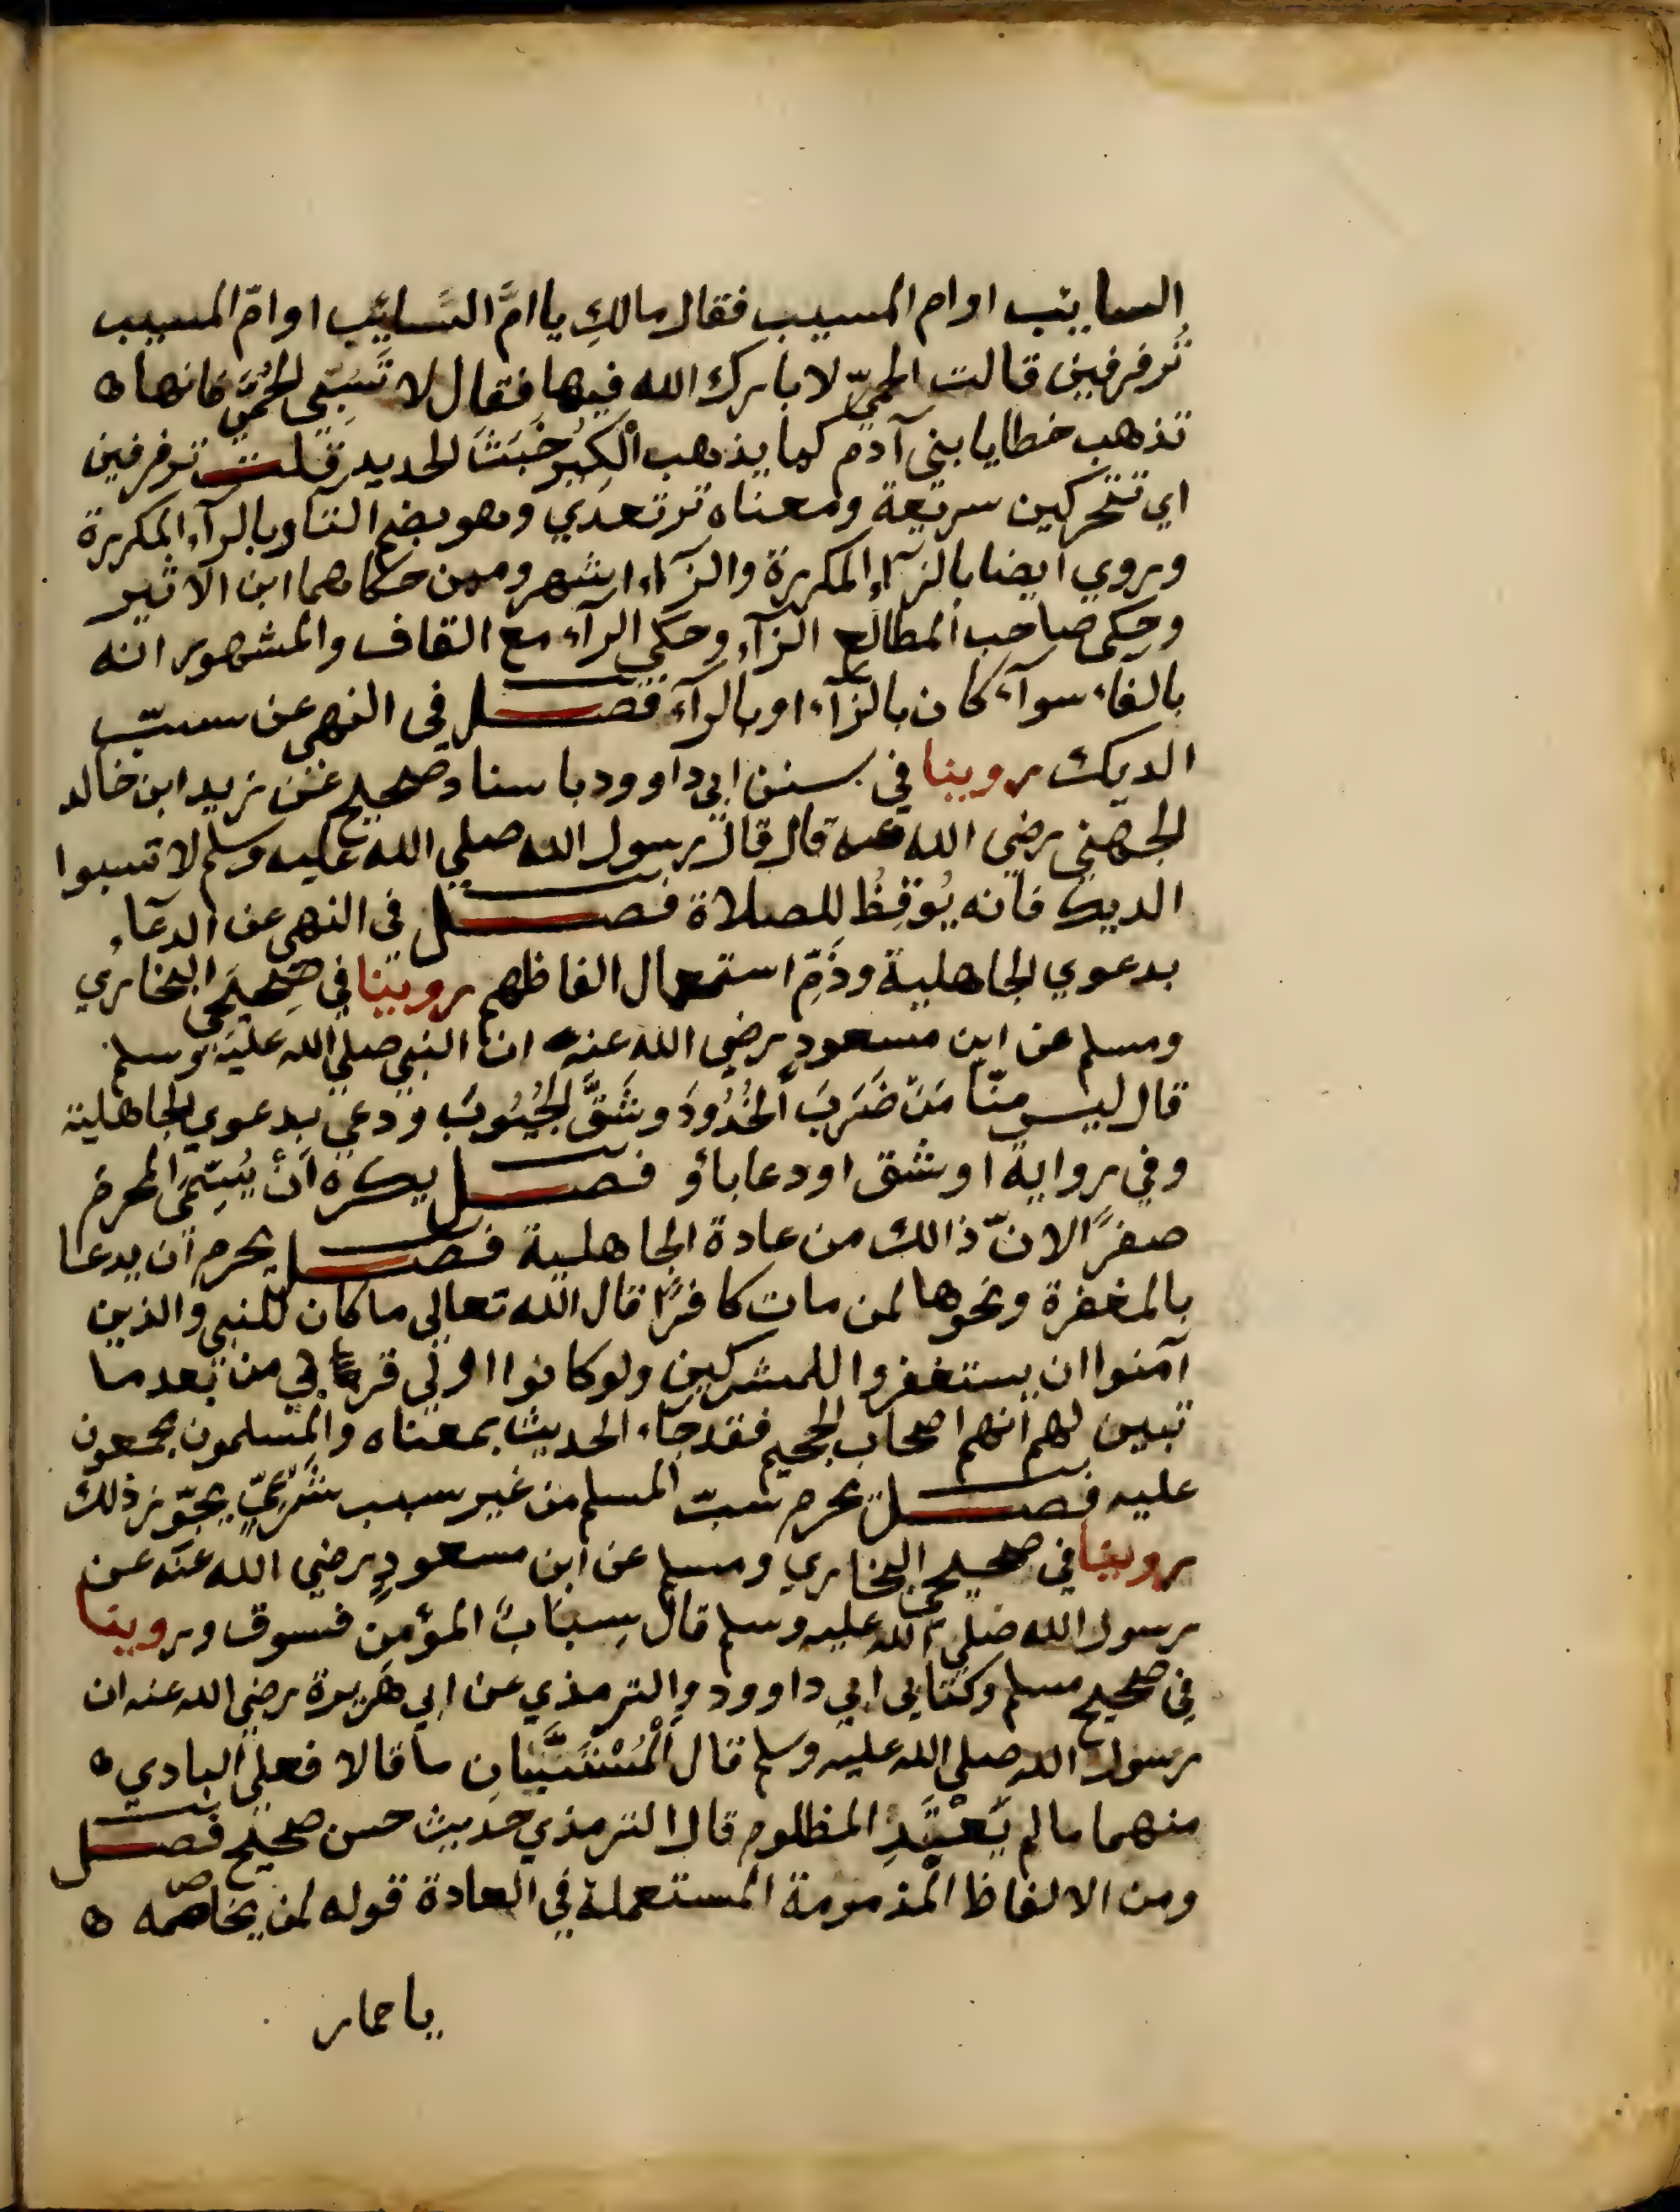 السايب اوام المسيب فقال مالكِ يا امَّ السَّائيب اوامّ المسيب
تُرفرفين قالت الحميّ لا بارك الله فيها فقال لا تَسَبِّي الحُمّى فانها ه
تذهب خطايا بنى آدم كما يذهب الْكِيرُ خَبَثَ الحديد قلت ترفرفين
اي تتحركين سريعة ومعناه ترتعدي وهو بضم التا وبالرآء المكررة
وروي ايضا بالزآء المكررة والزآء اشهر وممن حكاهما ابن الاثير
وحكى صاحب المطالع الزآء وحكي الرآء مع القاف والمشهور انه
بالفاء سوآء كان بالزآء او بالرآء فصل في النهى عن سبّ
الديك روينا في سنن ابي داوود باسناد صحيح عن زيد ابن خالد
الجهني رضي الله عنه قال قال رسول الله صلي الله عليه وسلم لا تسبوا
الديك فانه يُوقِظُ للصلاة فصل في النهى عن الدعآء
بدعوي الجاهلية وذَمِّ استعمال الفاظهم روينا في صحيحي البخاري
ومسلم عن ابن مسعودٍ رضي الله عنه ان النبي صلي الله عليه وسلم
قال ليس منّا مَنْ ضَرَبَ الْخُدُودَ وشَقَّ الجُيُوبَ ودعي بدعوي الجاهلية
وفي رواية اوشق اودعا بأو فصل يكره اَنْ يُسَمَّى المحرم
صفرًا لانّ ذالك من عادة الجاهلية فصل يحرم ان يدعا
بالمغفرة ونحوها لمن مات كافرًا قال الله تعالي ماكان للنبي والذين
آمنوا ان يستغفروا للمشركين ولو كانوا اولي قربي من بعد ما
تبين لهم انهم اصحاب الجحيم فقد جاء الحديث بمعناه والمسلمون مجمعون
عليه فصل يحرم سبّ المسلم من غير سبب شَرْعِيٍّ يجوّز ذلك
روينا في صحيحي البخاري ومسلم عن ابن مسعودٍ رضي الله عنه عن
رسول الله صلي الله عليه وسلم قال سِبَابُ المؤمِنِ فسوق وروينا
في صحيح مسلم وكتابي ابي داوود والترمذي عن ابي هُريرة رضي الله عنه ان
رسول الله صلي الله عليه وسلم قال الْمُسْتَبَّانِ ما قالا فعلي البادي ه
منهما مالم يَعْتَدِ المظلوم قال الترمذي حديث حسن صحيح فصل
ومن الالفاظ المذمومة المستعملة في العادة قوله لمن يخاصمه ه
يا حمار